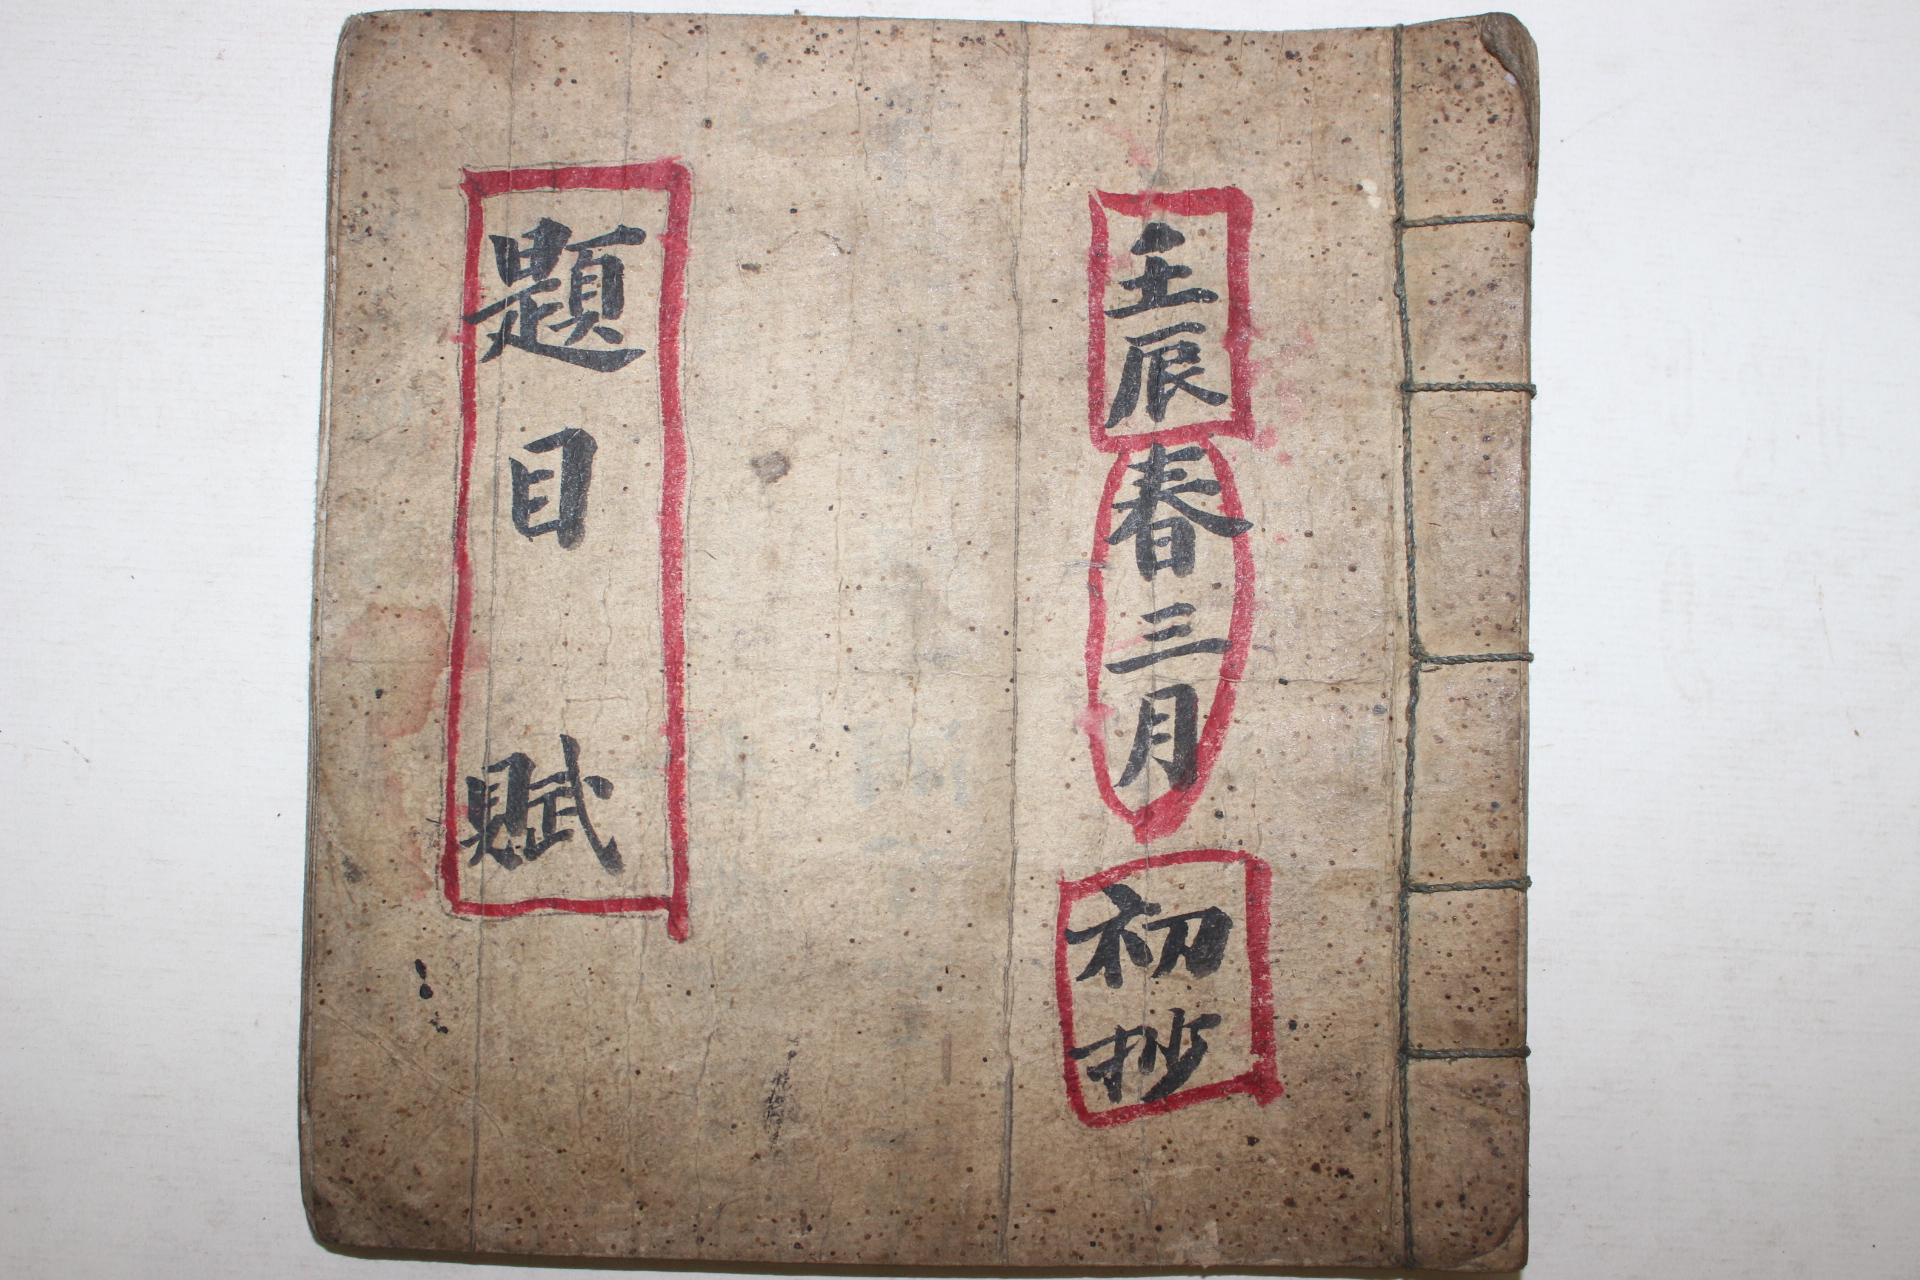 壬辰春三月初抄
題目 賦